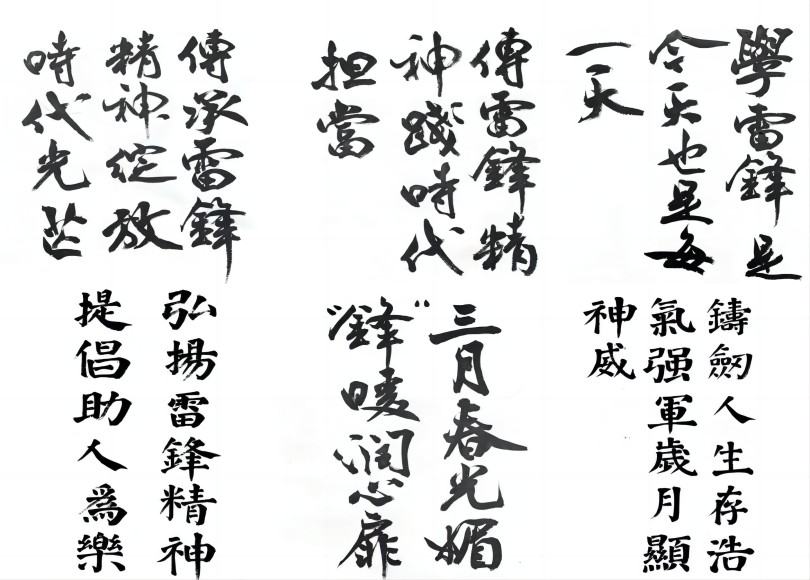 學雷鋒是
今天也是每
一天
傳雷鋒精
神踐時代
担當
傳承雷鋒
精神綻放
時代光芒
鑄劍人生存浩
氣强軍歲月顯
神威
三月春光媚
“鋒”暖润心扉
弘揚雷鋒精神
提倡助人為樂